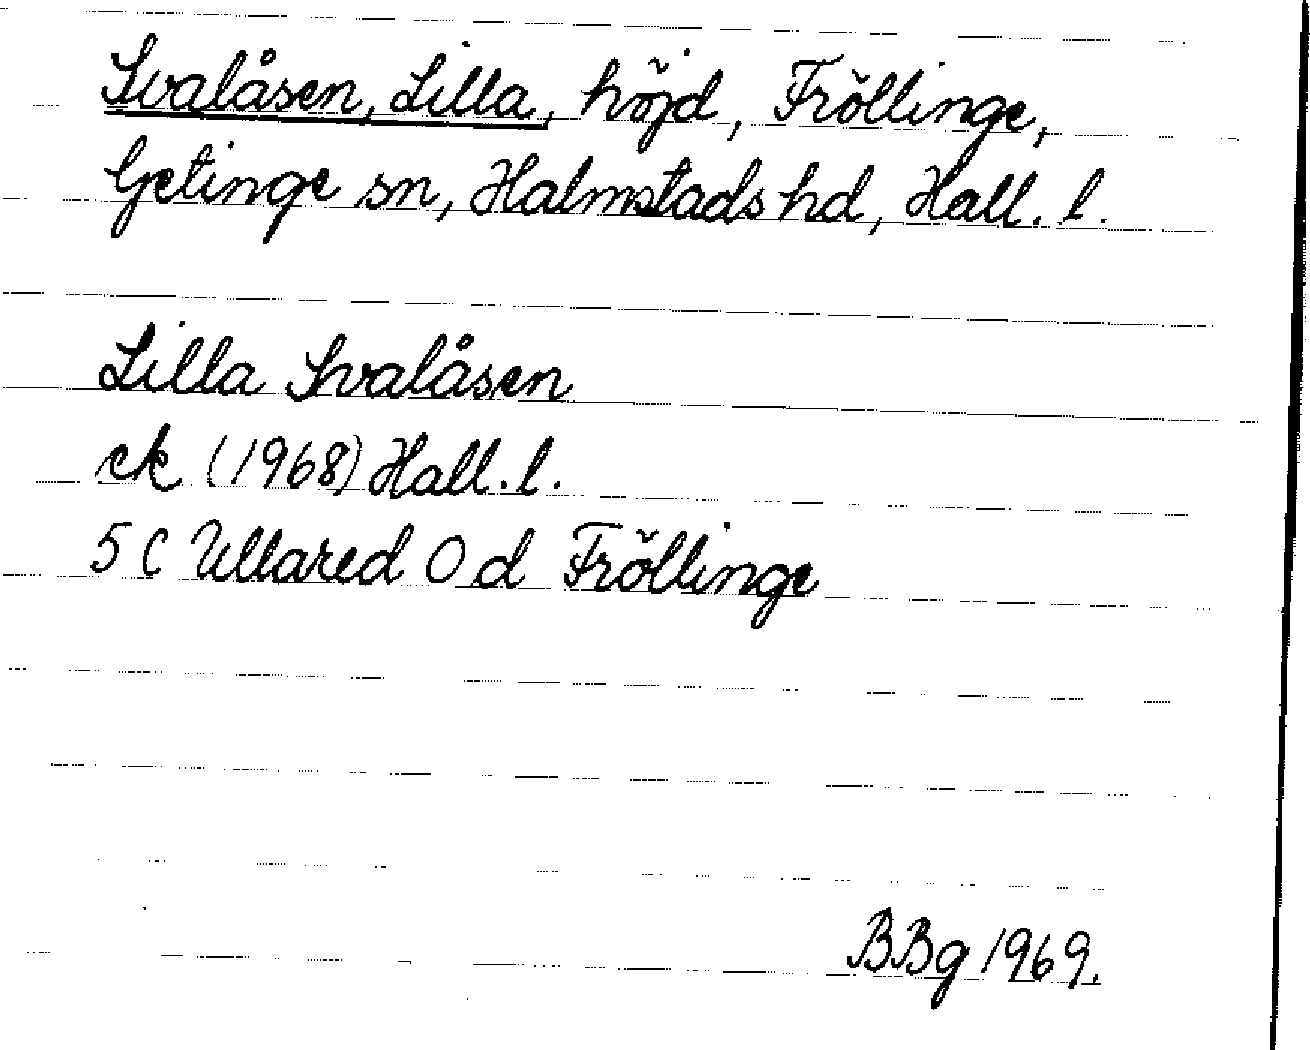 Svalåsen, Lilla, höjd, Fröllinge,
Getinge sn, Halmstads hd, Hall. l.
Lilla Svalåsen
ek (1968) Hall. l.
5 C Ullared O d Fröllinge
BBg 1969.